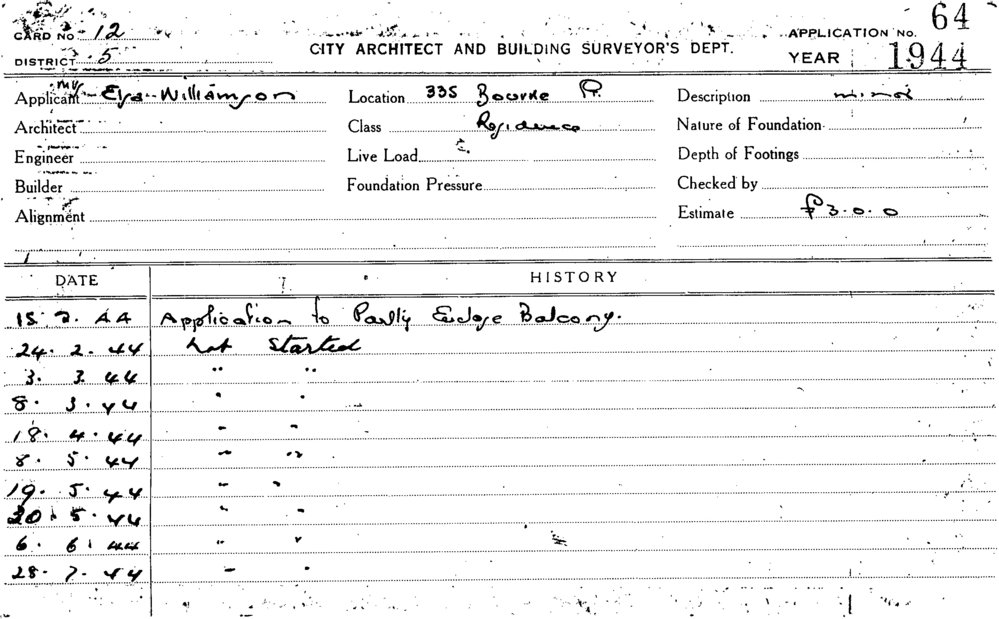 CARD No. 12
APPLICATION No. 64
DISTRICT 5
CITY ARCHITECT AND BUILDING SURVEYOR'S DEPT.
YEAR 1944
Applicant Mrs Elsa Williamson
Location 335 Bourke
Description minor
Architect
Class Residence
Nature of Foundation
Engineer
Live Load
Depth of Footings
Builder
Foundation Pressure
Checked by
Alignment
Estimate £3.0.0
DATE HISTORY
15. 2. 44 Application to Partly Enclose Balcony.
24. 2. 44 not Started
3. 3. 44 " "
8. 3. 44 " "
18. 4. 44 " "
8. 5. 44 " "
19. 5. 44 " "
30. 5. 44 " "
6. 6. 44 " "
28. 7. 44 " "